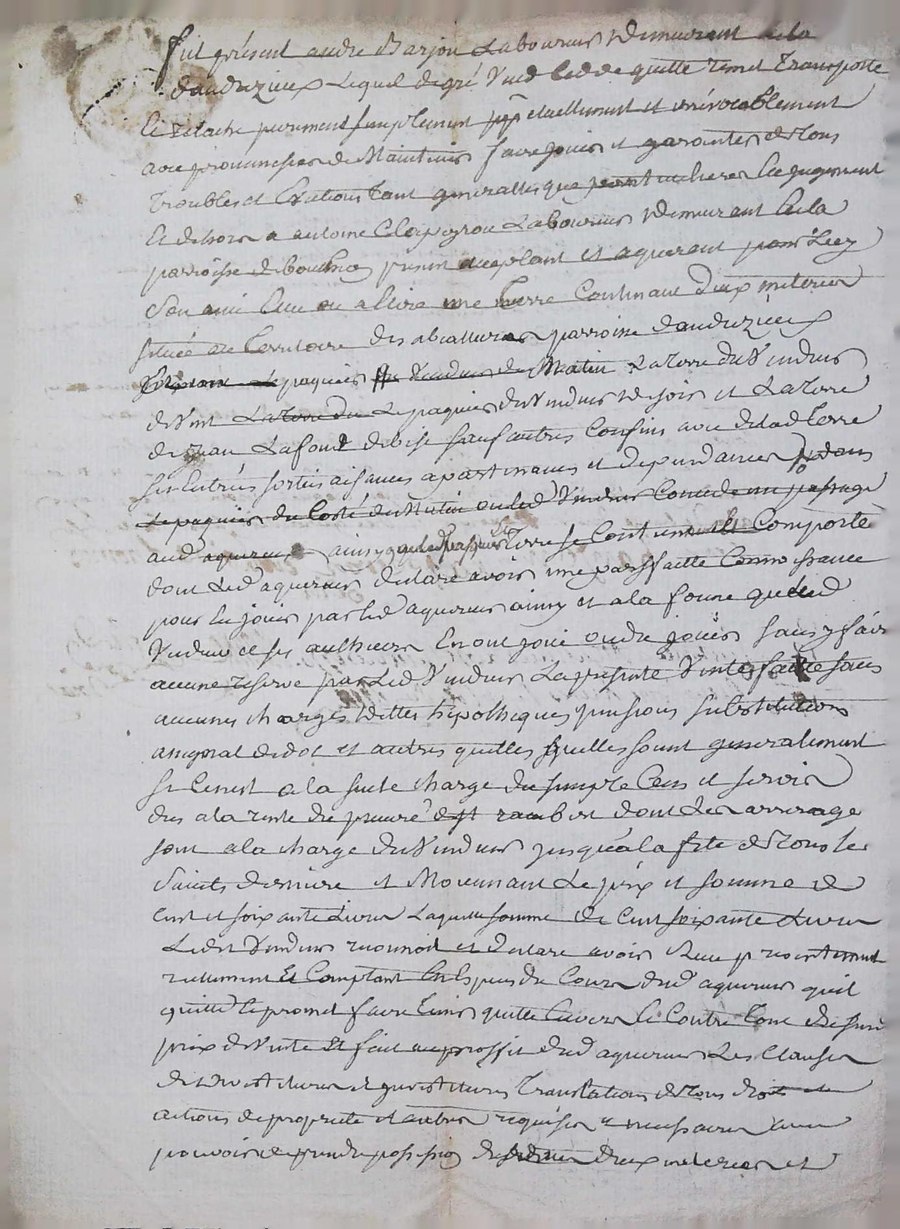 fut présent andré Barjon Laboureur demeurant
dandrezieux Lequel de gré vend cedde quitte remet Transporte
et relache purement simplement perpetuellement et irrévocablement
avec promesses de Maintenir faire jouir et garantir de tous
Troubles et Evictions tant generalles que particulieres En jugement
Et dehors a antoine Clepeyron Laboureur demeurant En la
parroisse de bouthéon present acceptant et aquerant pour Luy
Son ami Eleu ou a Elire une terre Contenant deux meterées
située au territoire des parroisse dandrezieux
paquier du vendeur de Matin La terre du vendeur
de vent Le paquier du vendeur de soir et La terre
de Jean Lafond de bise sauf autres Confins avec de lad terre
ses Entrées sorties aisances apartenances et dependances
Le paquier du Costé de Matin ou led vendeur Concede un passage
aud aquereur ainsy que se Contient et Comporte
dont Led aquereur declare avoir une parffaitte Connoissance
pour En jouir par led aquereur ainsy et a la forme que led
vendeur et ses autheurs En ont joui ou du jouir sans y faire
aucune reserve par Led vendeur La presente vente faitte sans
aucunes charges dettes hipotheques pensions substitutions
augment de dot et autres quelles quelles soint generalement
si Cenest a la seule charge du simple Cens et servis
dus a la rente du prieuré de st rambert dont des arrerage
sont a la charge du vendeur jusqu'a la fete de Tous les
Saints derniere et Moienant Le prix et somme de
Cent et soixante Livres Laquelle somme de Cent soixante Livres
Ledit vendeur reconnoit et declare avoir Receu presentement
reellement Et Comptant En Especes de Cours dud aquereur qu'il
quitte et promet faire tenir quitte Envers Et Contre tous
prix de vente Et fait au proffit dud aquereur Les Clauses
de devestitures et investitures Translations de Tous droits et
actions de proprieté et autres requises et necessaires avec
pouvoir de prendre possession des deux meterées et